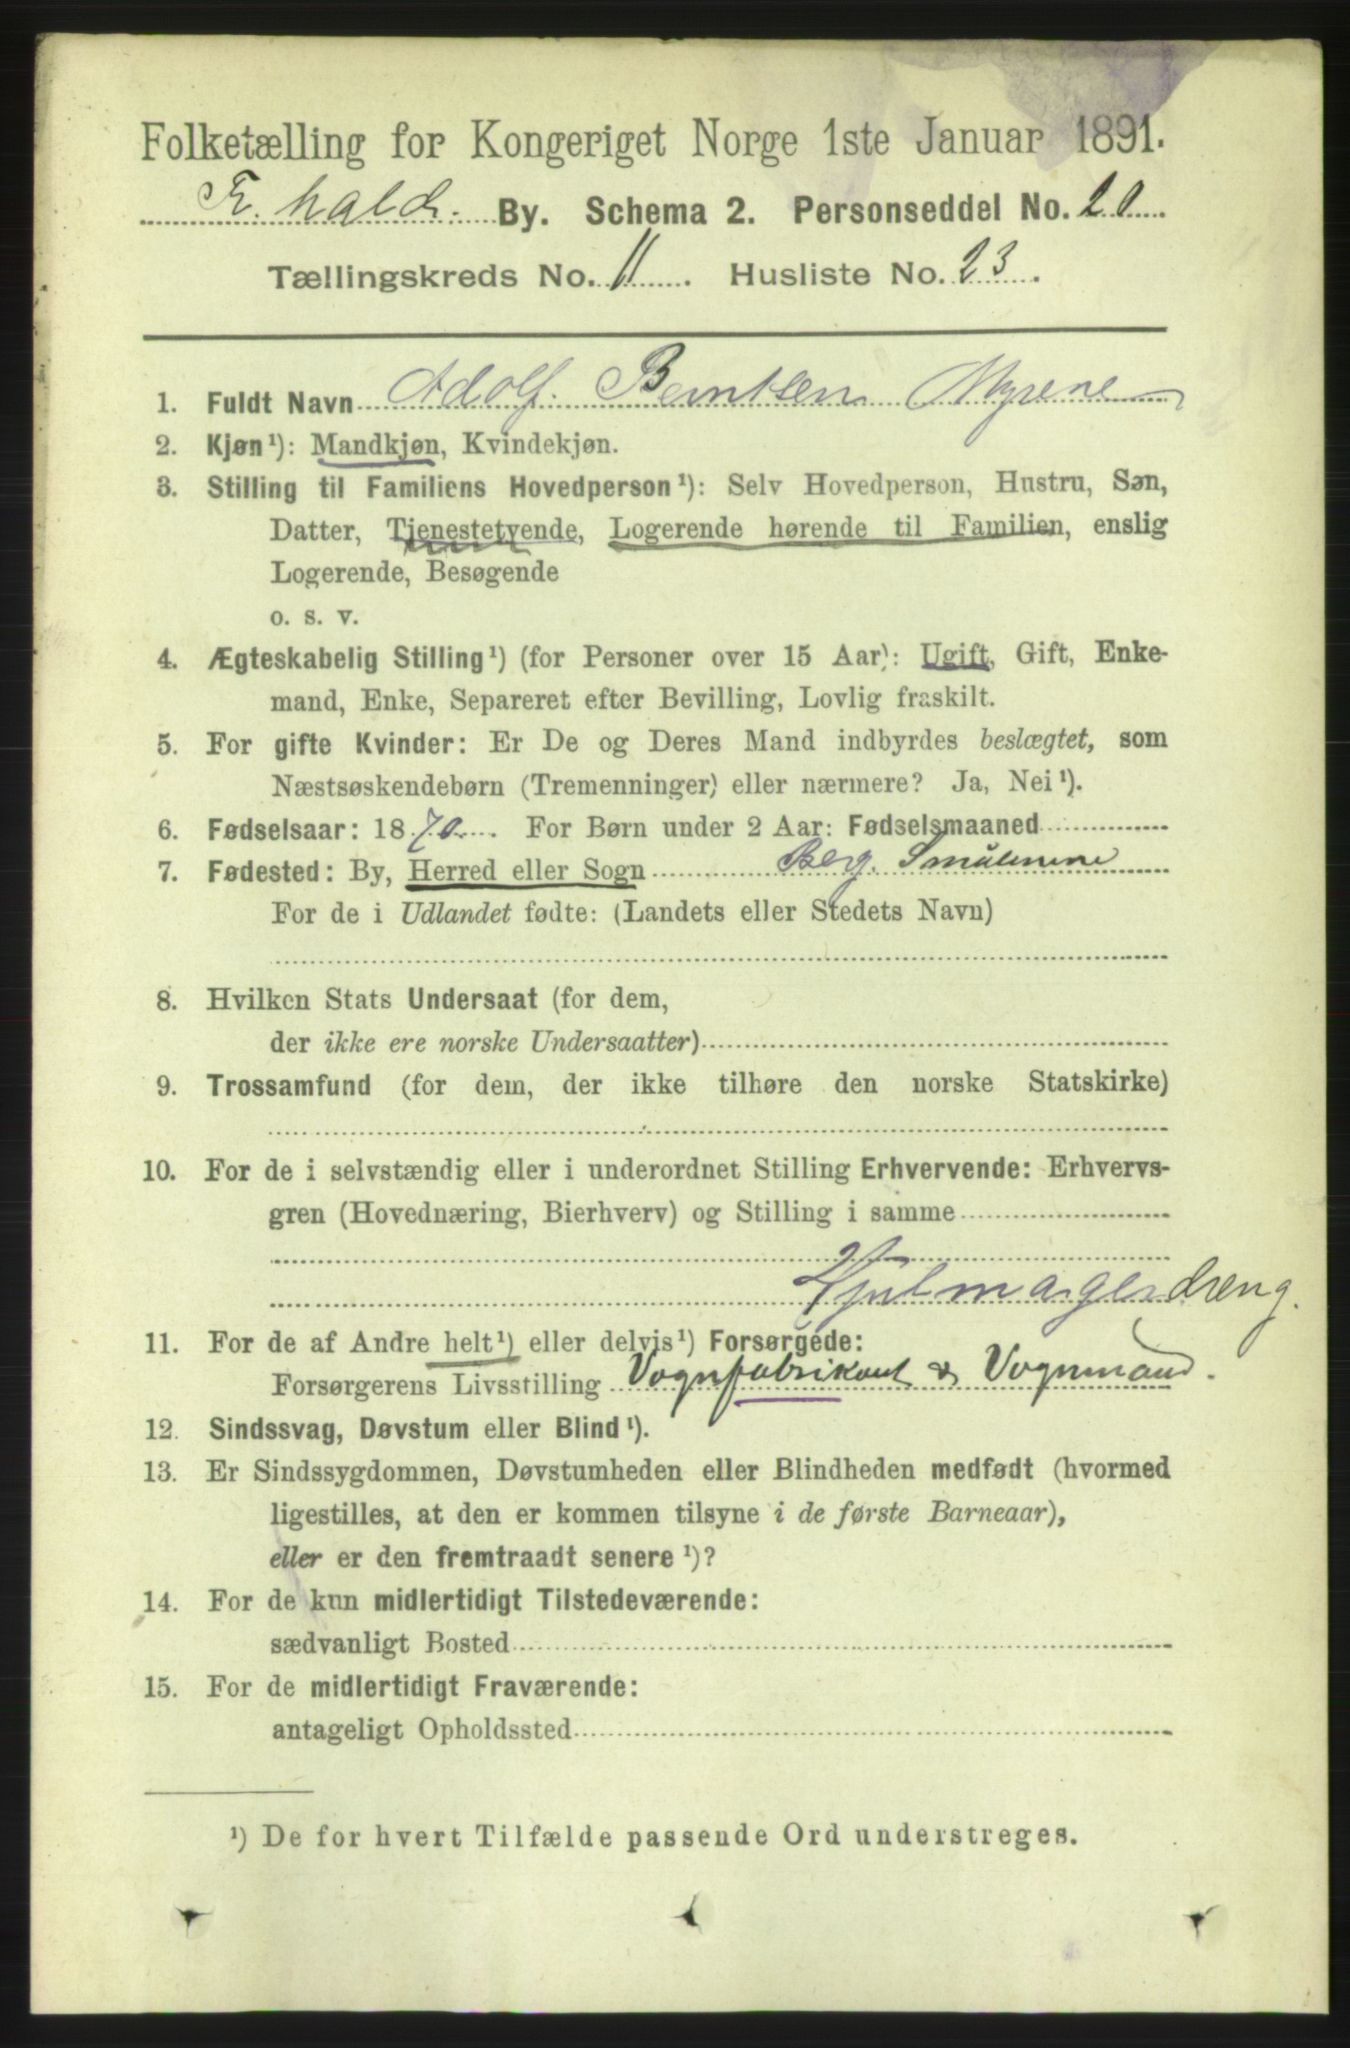 Folketælling for Kongeriget Norge 1ste Januar 1891.
Fr.hald. By. Schema 2. Personseddel No. 20
Tællingskreds No. 11. Husliste No. 23.
1. Fuldt Navn Adolf Berntsen Myrene
2. Kjøn¹): Mandkjøn, Kvindekjøn.
3. Stilling til Familiens Hovedperson¹): Selv Hovedperson, Hustru, Søn,
Datter, Tjenestetyende, Logerende hørende til Familien, enslig
Logerende, Besøgende
o. s. v.
4. Ægteskabelig Stilling¹) (for Personer over 15 Aar): Ugift, Gift, Enke-
mand, Enke, Separeret efter Bevilling, Lovlig fraskilt.
5. For gifte Kvinder: Er De og Deres Mand indbyrdes beslægtet, som
Næstsøskendebørn (Tremenninger) eller nærmere? Ja, Nei¹).
6. Fødselsaar: 1870. For Børn under 2 Aar: Fødselsmaaned
7. Fødested: By, Herred eller Sogn Berg. Smålenene
For de i Udlandet fødte: (Landets eller Stedets Navn)
8. Hvilken Stats Undersaat (for dem,
der ikke ere norske Undersaatter)
9. Trossamfund (for dem, der ikke tilhøre den norske Statskirke)
10. For de i selvstændig eller i underordnet Stilling Erhvervende: Erhvervs-
gren (Hovednæring, Bierhverv) og Stilling i samme
Hjulmagerdreng.
11. For de af Andre helt¹) eller delvis¹) Forsørgede:
Forsørgerens Livsstilling Vognfabrikant & Vognmand.
12. Sindssvag, Døvstum eller Blind¹).
13. Er Sindssygdommen, Døvstumheden eller Blindheden medfødt (hvormed
ligestilles, at den er kommen tilsyne i de første Barneaar),
eller er den fremtraadt senere¹)?
14. For de kun midlertidigt Tilstedeværende:
sædvanligt Bosted
15. For de midlertidigt Fraværende:
antageligt Opholdssted
¹) De for hvert Tilfælde passende Ord understreges.